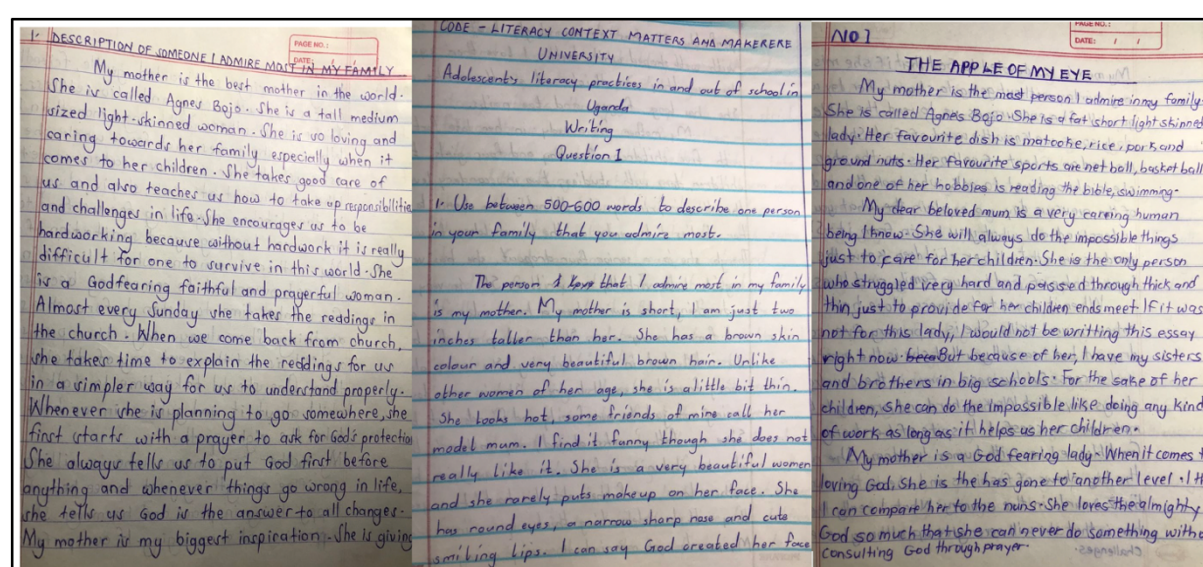 PAGE NO.:
DATE:
1. DESCRIPTION OF SOMEONE I ADMIRE MOST IN MY FAMILY
My mother is the best mother in the world.
She is called Agnes Bojo. She is a tall medium
sized light-skinned woman. She is so loving and
caring towards her family especially when it
comes to her children. She takes good care of
us and also teaches us how to take up responsibilitie
and challenges in life. She encourages us to be
hardworking because without hardwork it is really
difficult for one to survive in this world. She
is a Godfearing faithful and prayerful woman.
Almost every Sunday she takes the readings in
the church. When we come back from church,
she takes time to explain the readings for us
in a simpler way for us to understand properly.
Whenever she is planning to go somewhere, she
first starts with a prayer to ask for God's protection
She always tells us to put God first before
anything and whenever things go wrong in life,
she tells us God is the answer to all changes.
My mother is my biggest inspiration. She is giving
CODE - LITERACY CONTEXT MATTERS AND MAKERERE
UNIVERSITY
Adolescent's literacy practices in and out of school in
Uganda
Writing
Question 1
1. Use between 500-600 words to describe one person
in your family that you admire most.
The person I that I admire most in my family
is my mother. My mother is short, I am just two
inches taller than her. She has a brown skin
colour and very beautiful brown hair. Unlike
other women of her age, she is alittle bit thin.
She looks hot, some friends of mine call her
model mum. I find it funny though she does not
really like it. She is a very beautiful women
and she rarely puts makeup on her face. She
has round eyes, a narrow sharp nose and cute
smiling lips. I can say God created her face
PAGE NO.:
DATE: / /
NO 1
THE APPLE OF MY EYE
My mother is the most person I admire in my family
She is called Agnes Bojo. She is a fat short light skinned
lady. Her favourite dish is matooke, rice, pork and
ground nuts. Her favourite sports are net ball, basket ball
and one of her hobbies is reading the bible, swimming.
My dear beloved mum is a very careing human
being I know. She will always do the impossible things
just to care for her children. She is the only person
who struggled very hard and passed through thick and
thin just to provide for her children ends meet If it was
not for this lady, I would not be writting this essay
right now. But because of her, I have my sisters
and brothers in big schools. For the sake of her
children, she can do the impossible like doing any kind
of work as long as it helps us her children.
My mother is a God fearing lady. When it comes t
loving God, she is the has gone to another level. I th
I can compare her to the nuns. She loves the almighty
God so much that she can never do something witho
consulting God through prayer.